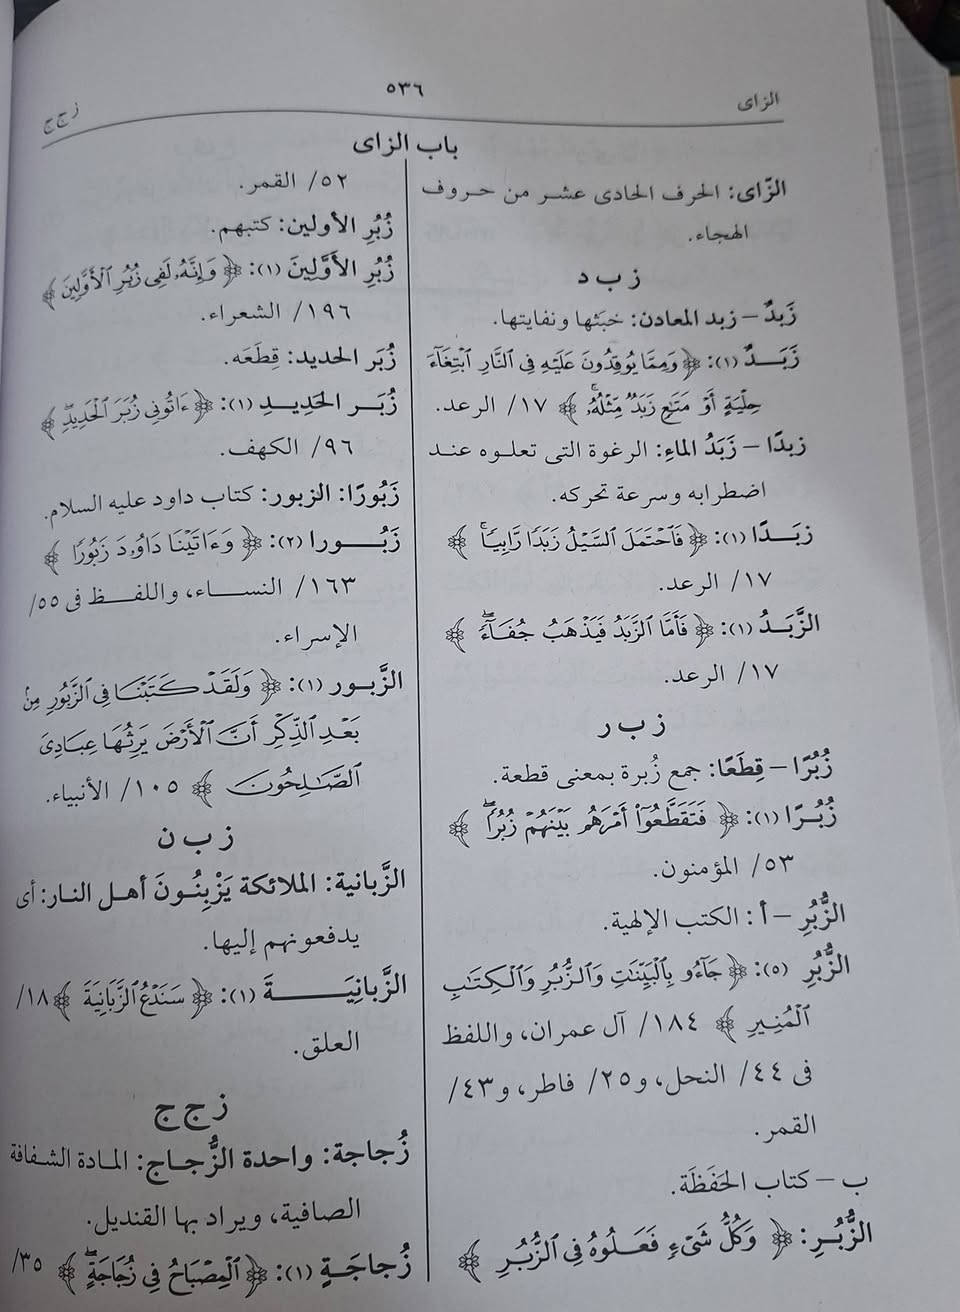 الزاى
٥٣٦
زج ج
باب الزاى
الزّاى: الحرف الحادى عشر من حروف
الهجاء.
ز ب د
زَبدٌ – زبد المعادن: خبَثها ونفايتها.
زَبَــدٌ (١): ﴿ وَمِمَّا يُوقِدُونَ عَلَيْهِ فِى ٱلنَّارِ ٱبْتِغَآءَ
حِلْيَةٍ أَوْ مَتَٰعٍ زَبَدٌ مِّثْلُهُۥ ﴾ ١٧/ الرعد.
زبدًا – زَبَدُ الماءِ: الرغوة التى تعلوه عند
اضطرابه وسرعة تحركه.
زبَــدًا (١): ﴿ فَٱحْتَمَلَ ٱلسَّيْلُ زَبَدًا رَّابِيًا ﴾
١٧/ الرعد.
الزَّبَــدُ (١): ﴿ فَأَمَّا ٱلزَّبَدُ فَيَذْهَبُ جُفَآءً ﴾
١٧/ الرعد.
ز ب ر
زُبُرًا – قِطَعًا: جمع زُبرة بمعنى قطعة.
زُبُــرًا (١): ﴿ فَتَقَطَّعُوٓا۟ أَمْرَهُم بَيْنَهُمْ زُبُرًا ﴾
٥٣/ المؤمنون.
الزُّبُرِ – أ : الكتب الإلهية.
الزُّبُرِ (٥): ﴿ جَآءُو بِٱلْبَيِّنَٰتِ وَٱلزُّبُرِ وَٱلْكِتَٰبِ
ٱلْمُنِيرِ ﴾ ١٨٤/ آل عمران، واللفظ
فى ٤٤/ النحل، و٢٥/ فاطر، و٤٣/
القمر.
ب – كتاب الحَفَظَة.
الزُّبُــرِ: ﴿ وَكُلُّ شَىْءٍ فَعَلُوهُ فِى ٱلزُّبُرِ ﴾
٥٢/ القمر.
زُبُرِ الأولين: كتبهم.
زُبُرِ الأَوَّلِينَ (١): ﴿ وَإِنَّهُۥ لَفِى زُبُرِ ٱلْأَوَّلِينَ ﴾
١٩٦/ الشعراء.
زُبَر الحديد: قِطَعَه.
زُبَــر الحَدِيــدِ (١): ﴿ ءَاتُونِى زُبَرَ ٱلْحَدِيدِ ﴾
٩٦/ الكهف.
زَبُورًا: الزبور: كتاب داود عليه السلام.
زَبُـــورا (٢): ﴿ وَءَاتَيْنَا دَاوُۥدَ زَبُورًا ﴾
١٦٣/ النســاء، واللفــظ فى ٥٥/
الإسراء.
الزَّبور (١): ﴿ وَلَقَدْ كَتَبْنَا فِى ٱلزَّبُورِ مِنۢ
بَعْدِ ٱلذِّكْرِ أَنَّ ٱلْأَرْضَ يَرِثُهَا عِبَادِىَ
ٱلصَّٰلِحُونَ ﴾ ١٠٥/ الأنبياء.
ز ب ن
الزَّبانية: الملائكة يَزْبِنُونَ أهل النار: أى
يدفعونهم إليها.
الزَّبانِيَـــــة (١): ﴿ سَنَدْعُ ٱلزَّبَانِيَةَ ﴾ ١٨/
العلق.
ز ج ج
زُجاجة: واحدة الزُّجــاج: المادة الشفافة
الصافية، ويراد بها القنديل.
زُجاجَــةٍ (١): ﴿ ٱلْمِصْبَاحُ فِى زُجَاجَةٍ ﴾ ٣٥/